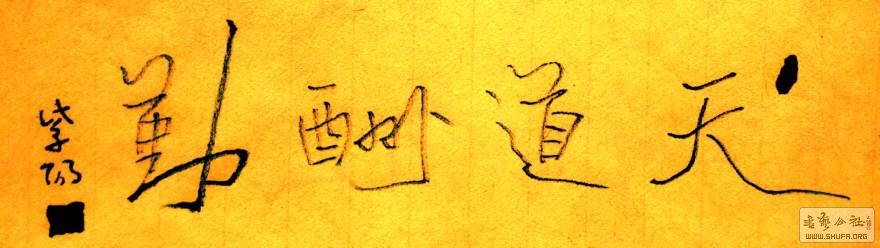 天道酬勤
紫阳
書藝公社
WWW.SHUFA.ORG